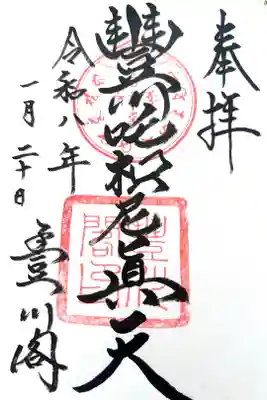 奉拝
豐川吒枳尼眞天
令和八年
一月二十日
豊川閣